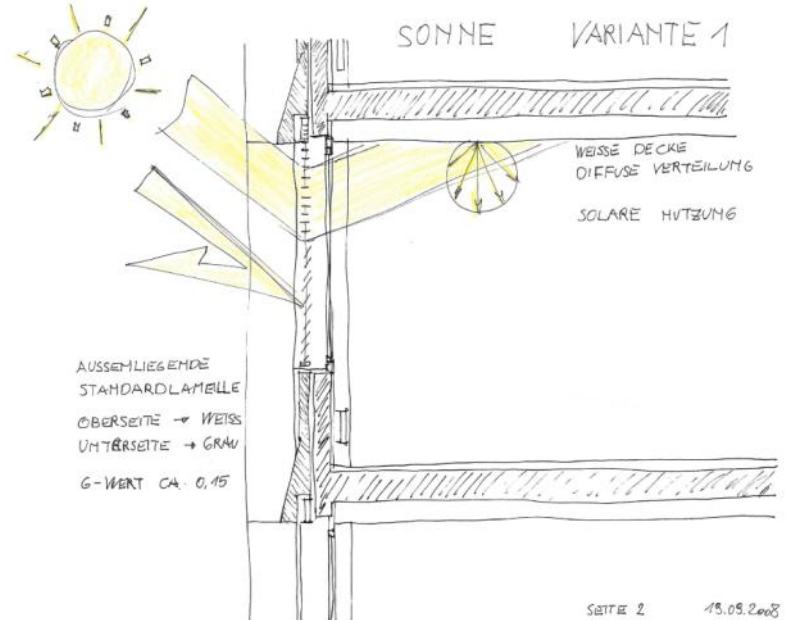 SONNE VARIANTE 1
WEISSE DECKE
DIFFUSE VERTEILUNG
SOLARE NUTZUNG
AUSSENLIEGENDE
STANDARDLAMELLE
OBERSEITE → WEISS
UNTERSEITE → GRAU
G-WERT CA. 0,15
SEITE 2 19.09.2008